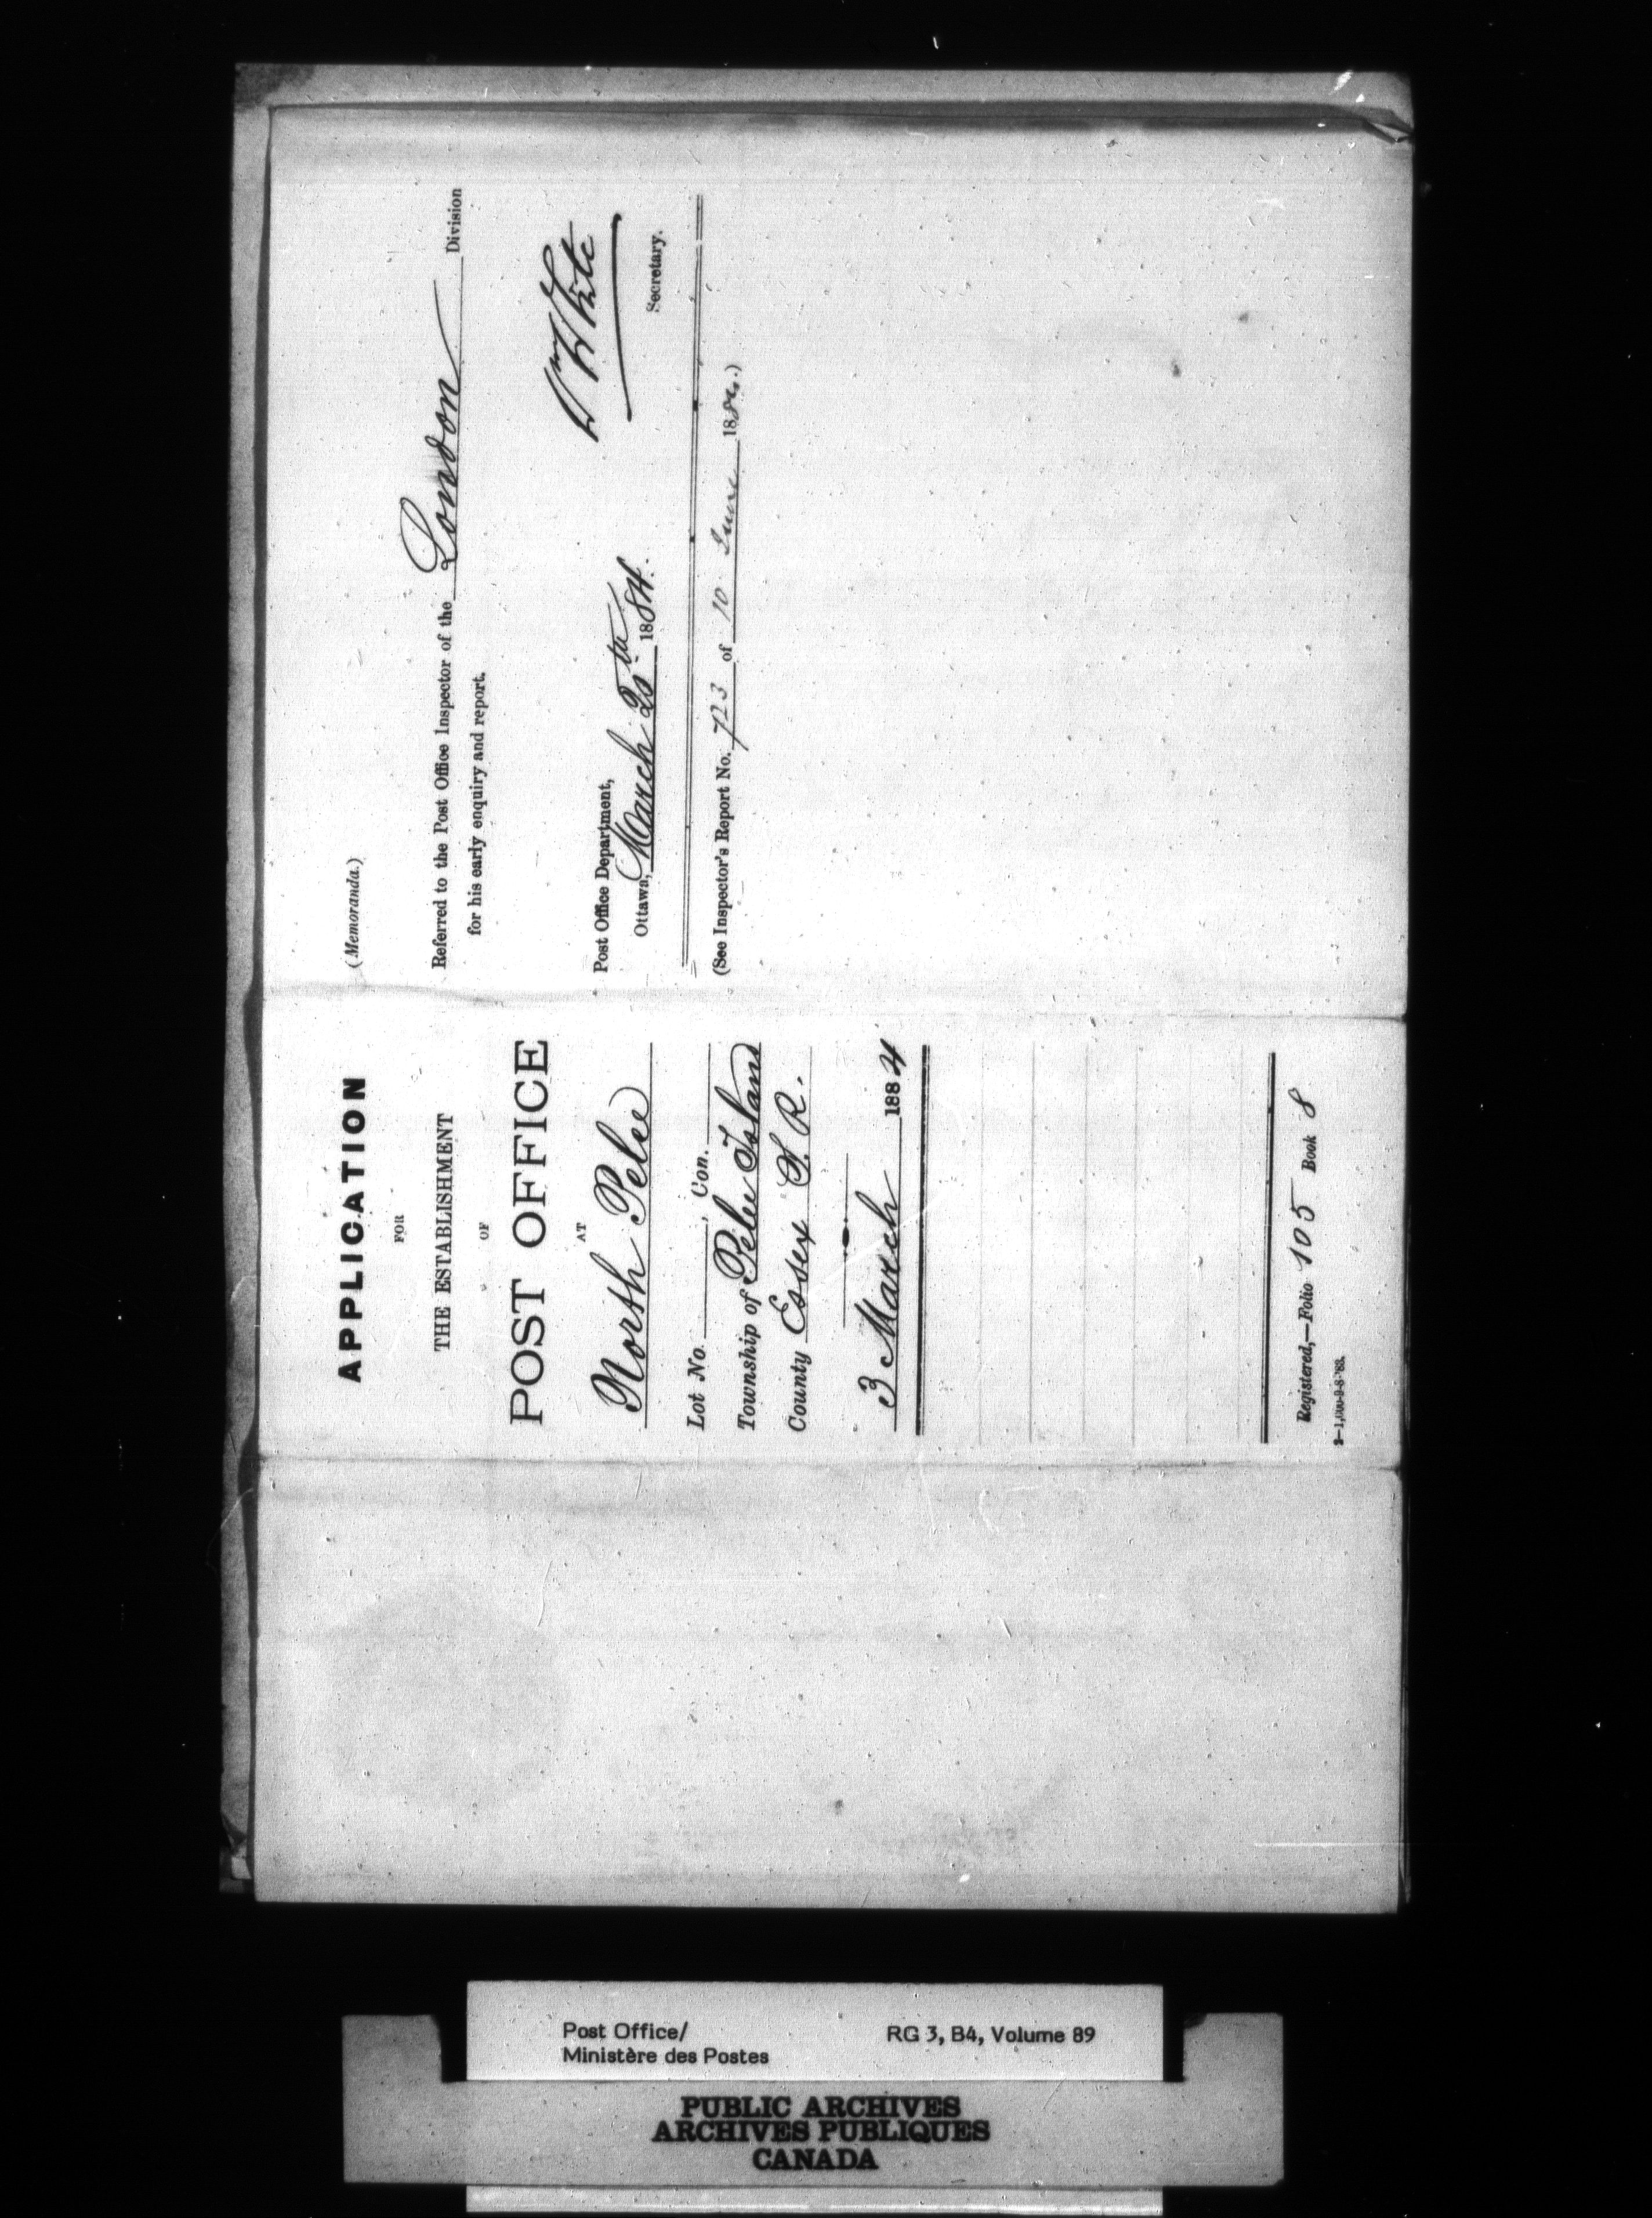 APPLICATION
FOR
THE ESTABLISHMENT
OF
POST OFFICE
AT
North Pelee
Lot No. , Con.
Township of Pelee Island
County Essex S. R.
3 March 1884
Registered,—Folio 105 Book 8
(Memoranda.)
Referred to the Post Office Inspector of the London Division
for his early enquiry and report.
Wm White
Secretary.
Post Office Department,
Ottawa, March 25th 1884.
(See Inspector's Report No. 723 of 10 June 188 .)
Post Office/
Ministère des Postes
RG 3, B4, Volume 89
PUBLIC ARCHIVES
ARCHIVES PUBLIQUES
CANADA